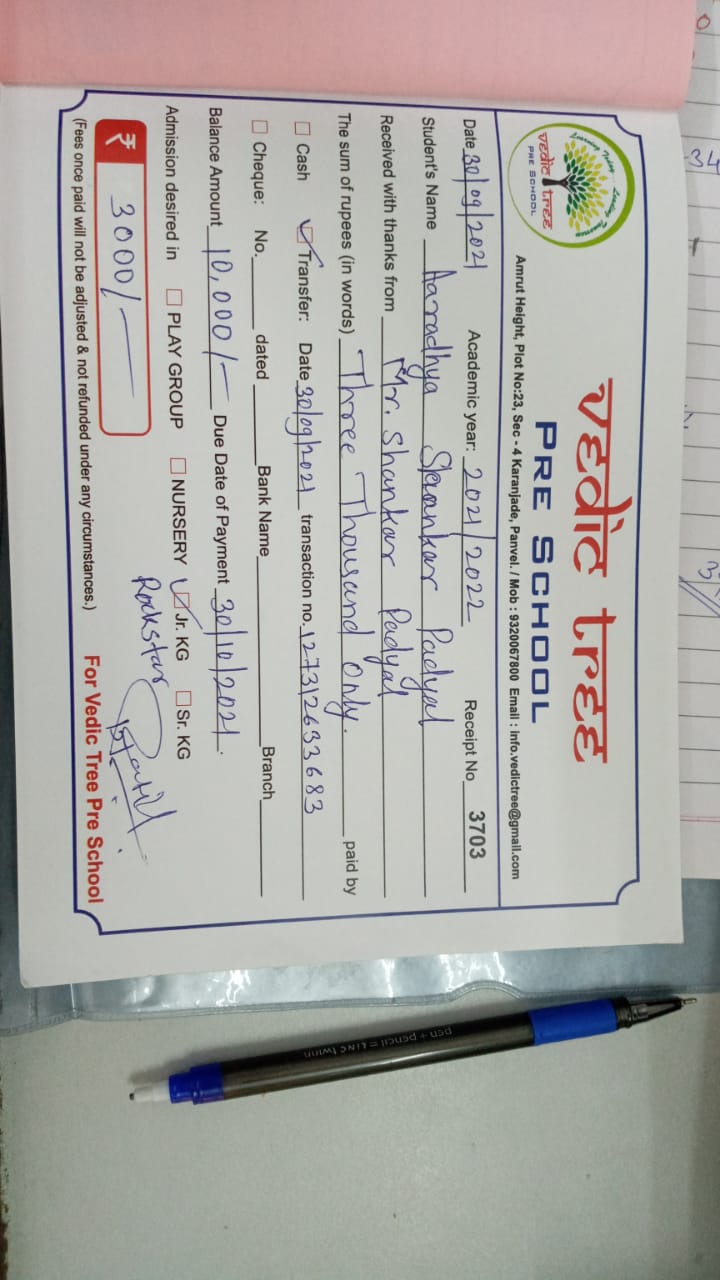 vedic tree
PRE SCHOOL
Amrut Height, Plot No:23, Sec - 4 Karanjade, Panvel. / Mob : 9320067800 Email : info.vedictree@gmail.com
vedic tree
PRE SCHOOL
Date 30/09/2021 Academic year: 2021/2022 Receipt No 3703
Student's Name Aaradhya Shankar Padyal
Received with thanks from Mr. Shankar Padyal
The sum of rupees (in words) Three Thousand Only. paid by
☐ Cash ☑ Transfer: Date 30/09/2021 transaction no. 127312693683
☐ Cheque: No. dated Bank Name Branch
Balance Amount 10,000/- Due Date of Payment 30/10/2021.
Admission desired in ☐ PLAY GROUP ☐ NURSERY ☑ Jr. KG ☐ Sr. KG
Rockstar
₹ 3000/-
(Fees once paid will not be adjusted & not refunded under any circumstances.) For Vedic Tree Pre School
pen + pencil = LINC twinn